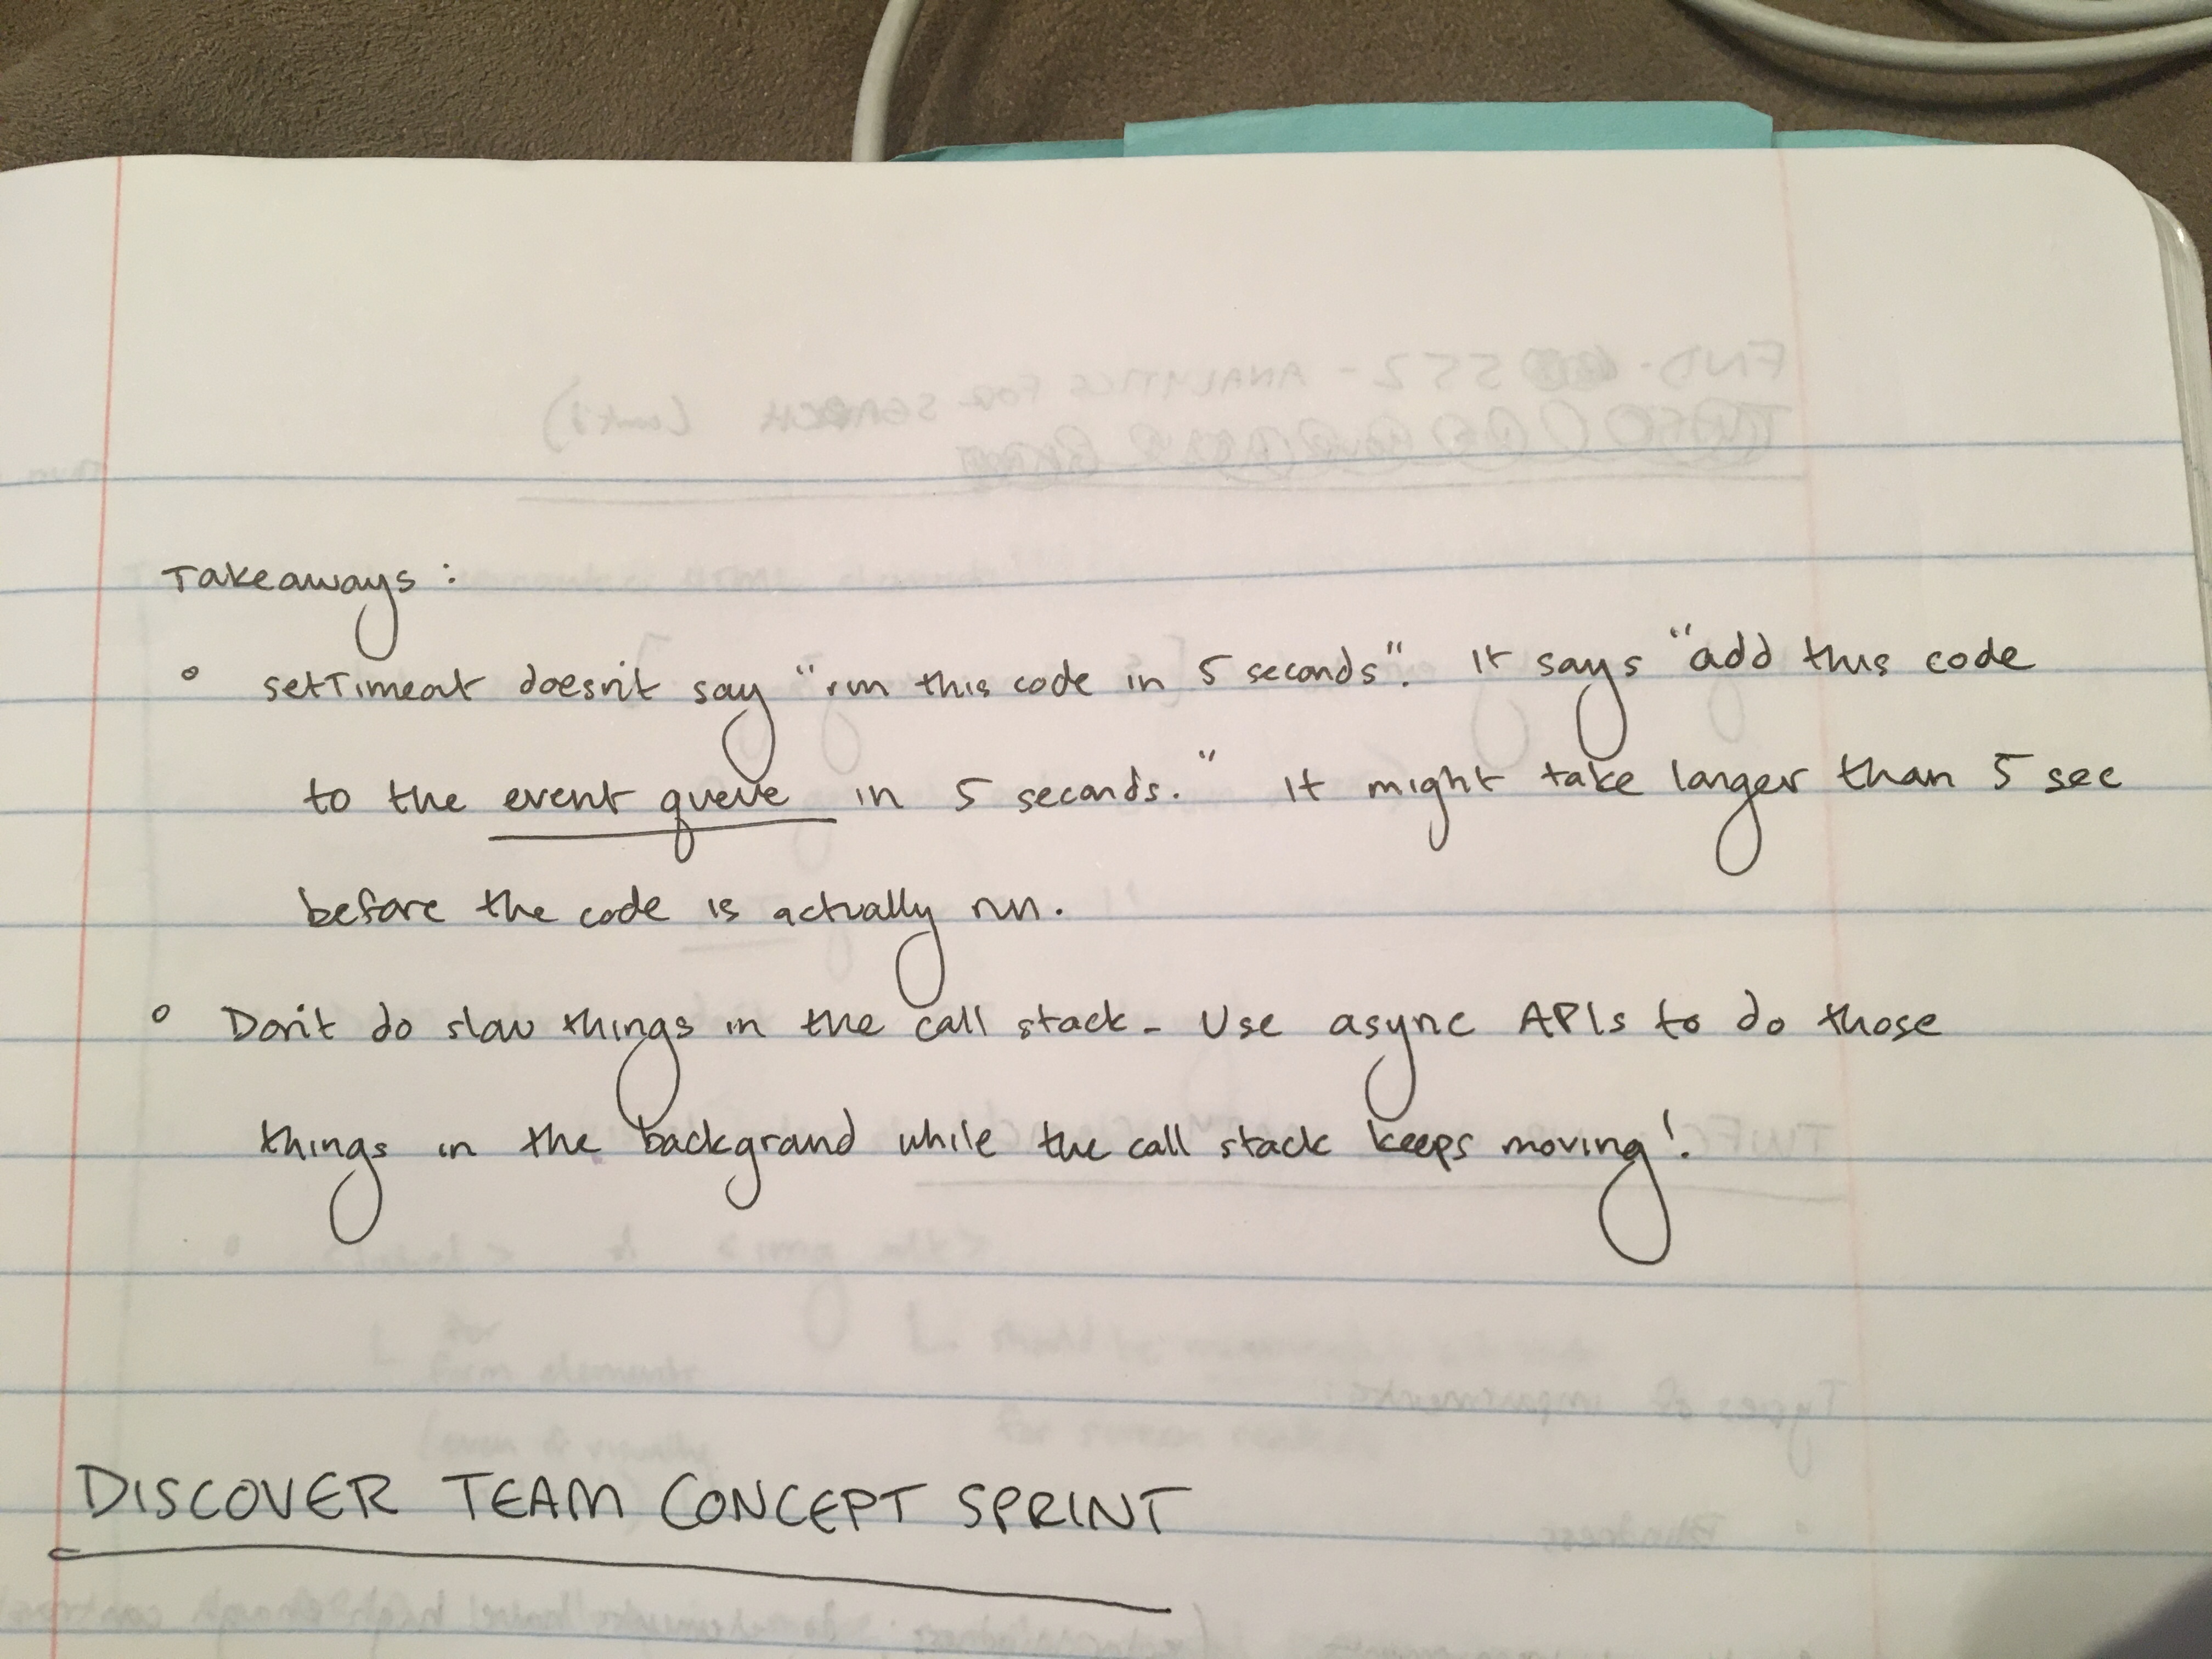 Takeaways:
° setTimeout doesn't say "run this code in 5 seconds". It says "add this code
to the event queue in 5 seconds." It might take longer than 5 sec
before the code is actually run.
° Don't do slow things in the call stack. Use async APIs to do those
things in the background while the call stack keeps moving!
DISCOVER TEAM CONCEPT SPRINT